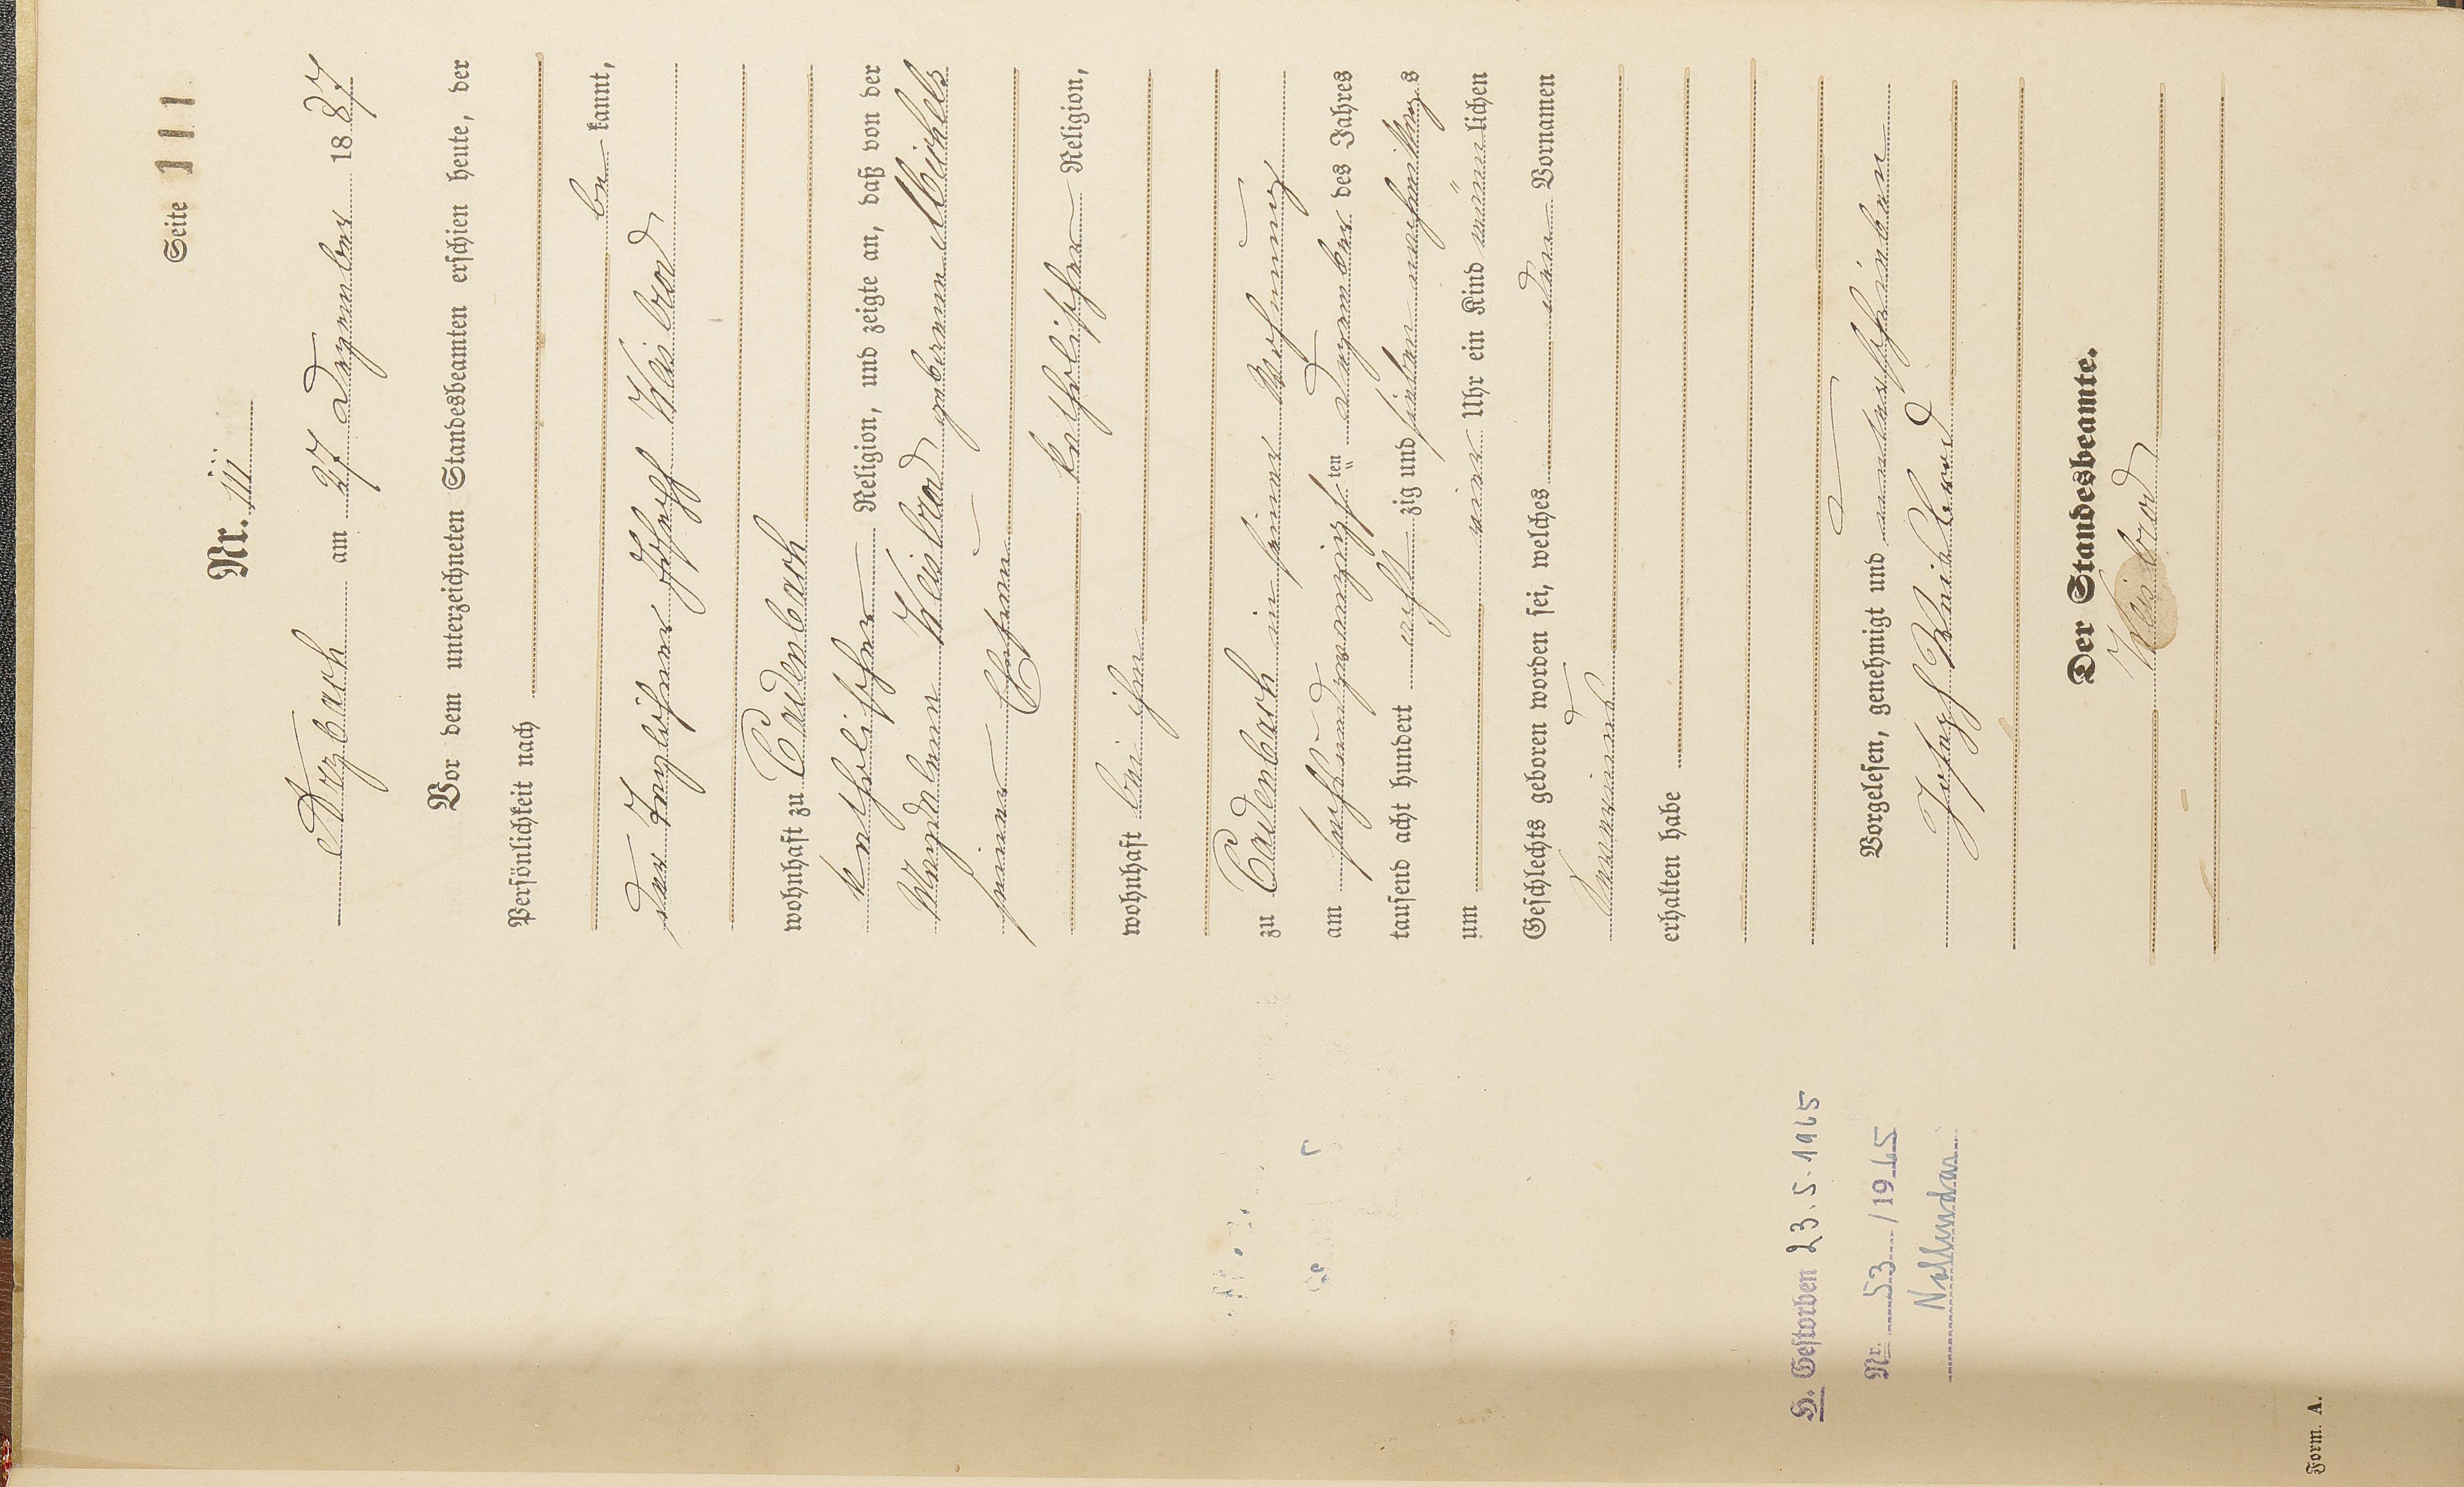 Seite 111
Nr. 111
Arzbach am 27 Dezember 1887
Vor dem unterzeichneten Standesbeamten erschien heute, der
Persönlichkeit nach
be kannt,
der Taglöhner Joseph Weisbrod
wohnhaft zu Cadenbach
katholischer Religion, und zeigte an, daß von der
Magdalena Weisbrod geborene Michels
seiner Ehefrau
katholischer Religion,
wohnhaft bei ihm
zu Cadenbach in seiner Wohnung
am sechsundzwanzigsten Dezember des Jahres
tausend acht hundert acht zig und sieben nachmittags
um eine Uhr ein Kind männlichen
Geschlechts geboren worden sei, welches den Vornamen
erhalten habe
Vorgelesen, genehmigt und unterschrieben
Josef Weisbrod
Der Standesbeamte.
Weisbrod
H. Gestorben 23.5.1965
Nr. 53/1965
Form. A.